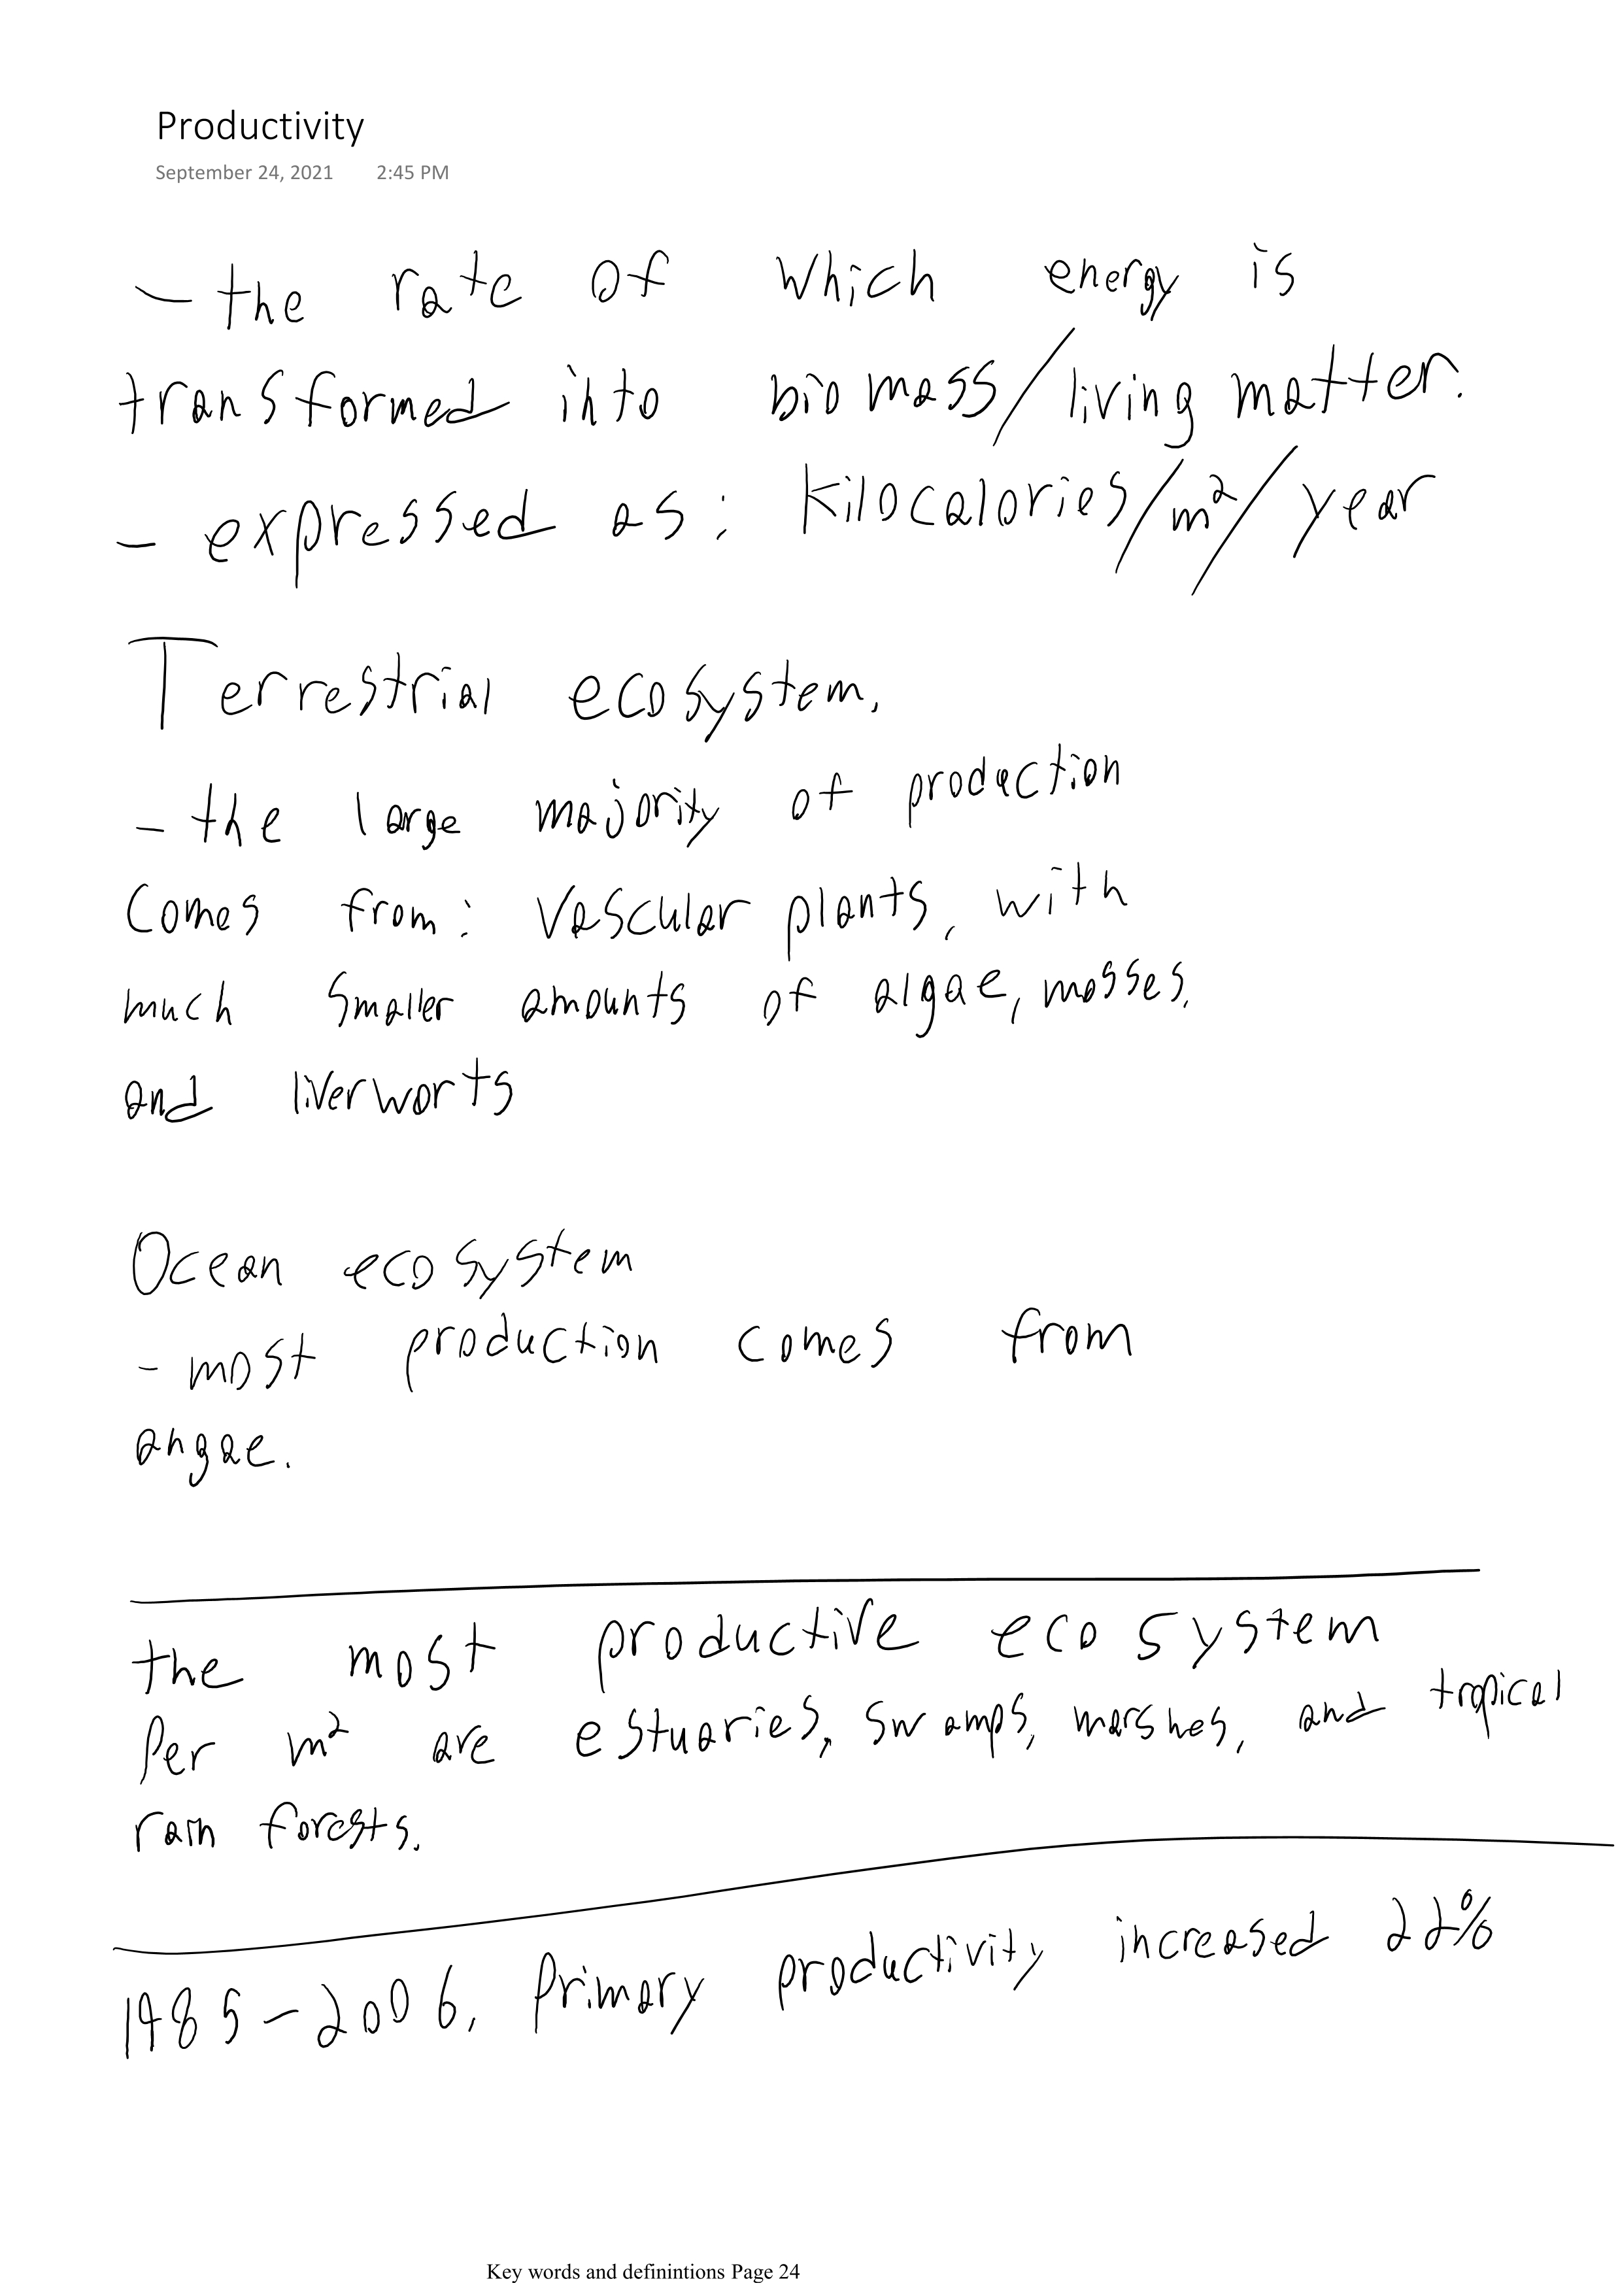 Productivity
September 24, 2021 2:45 PM
- the rate of which energy is
transformed into biomass/living matter.
- expressed as: kilocalories/m²/year
Terrestrial ecosystem.
- the large majority of production
Comes from: Vascular plants, with
much smaller amounts of algae, mosses,
and liverworts
Ocean ecosystem
- most production comes from
angae.
the most productive ecosystem
Per m² are estuaries, swamps, marshes, and tropical
rain forests.
1985-2006, Primary productivity increased 22%
Key words and definintions Page 24